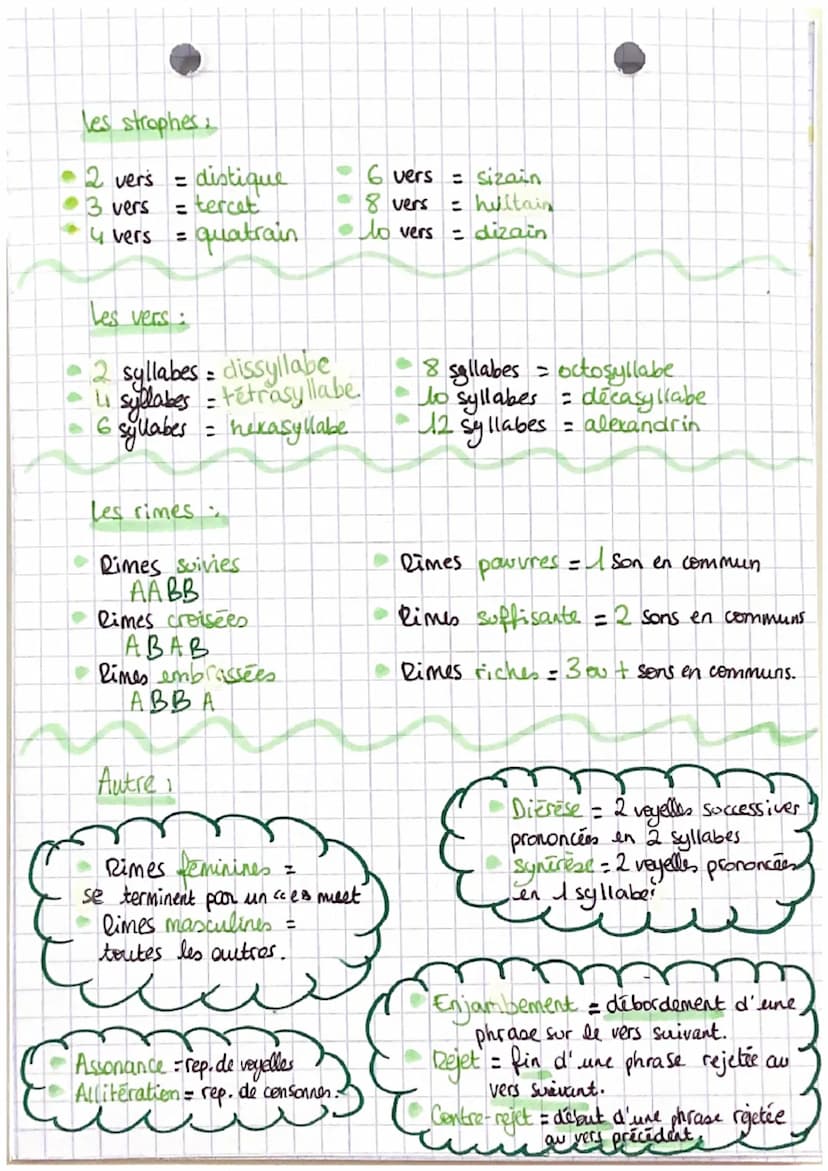 Les strophes :
2 vers = distique
3 vers = tercet
4 vers = quatrain
6 vers = sizain
8 vers = huitain
10 vers = dizain
Les vers :
2 syllabes = dissyllabe
4 syllabes = tétrasyllabe
6 syllabes = hexasyllabe
8 syllabes = octosyllabe
10 syllabes = décasyllabe
12 syllabes = alexandrin
Les rimes :
Rimes suivies
AABB
Rimes croisées
ABAB
Rimes embrassées
ABBA
Rimes pauvres = 1 son en commun
Rimes suffisante = 2 sons en communs
Rimes riches = 3 ou + sons en communs.
Autre :
Rimes féminines =
se terminent par un "e" muet
Rimes masculines =
toutes les autres.
Diérèse = 2 voyelles successives
prononcées en 2 syllabes
Synérèse = 2 voyelles prononcées
en 1 syllabe.
Assonance = rep. de voyelles
Allitération = rep. de consonnes.
Enjambement = débordement d'une
phrase sur le vers suivant.
Rejet = fin d'une phrase rejetée au
vers suivant.
Contre-rejet = début d'une phrase rejetée
au vers précédent.